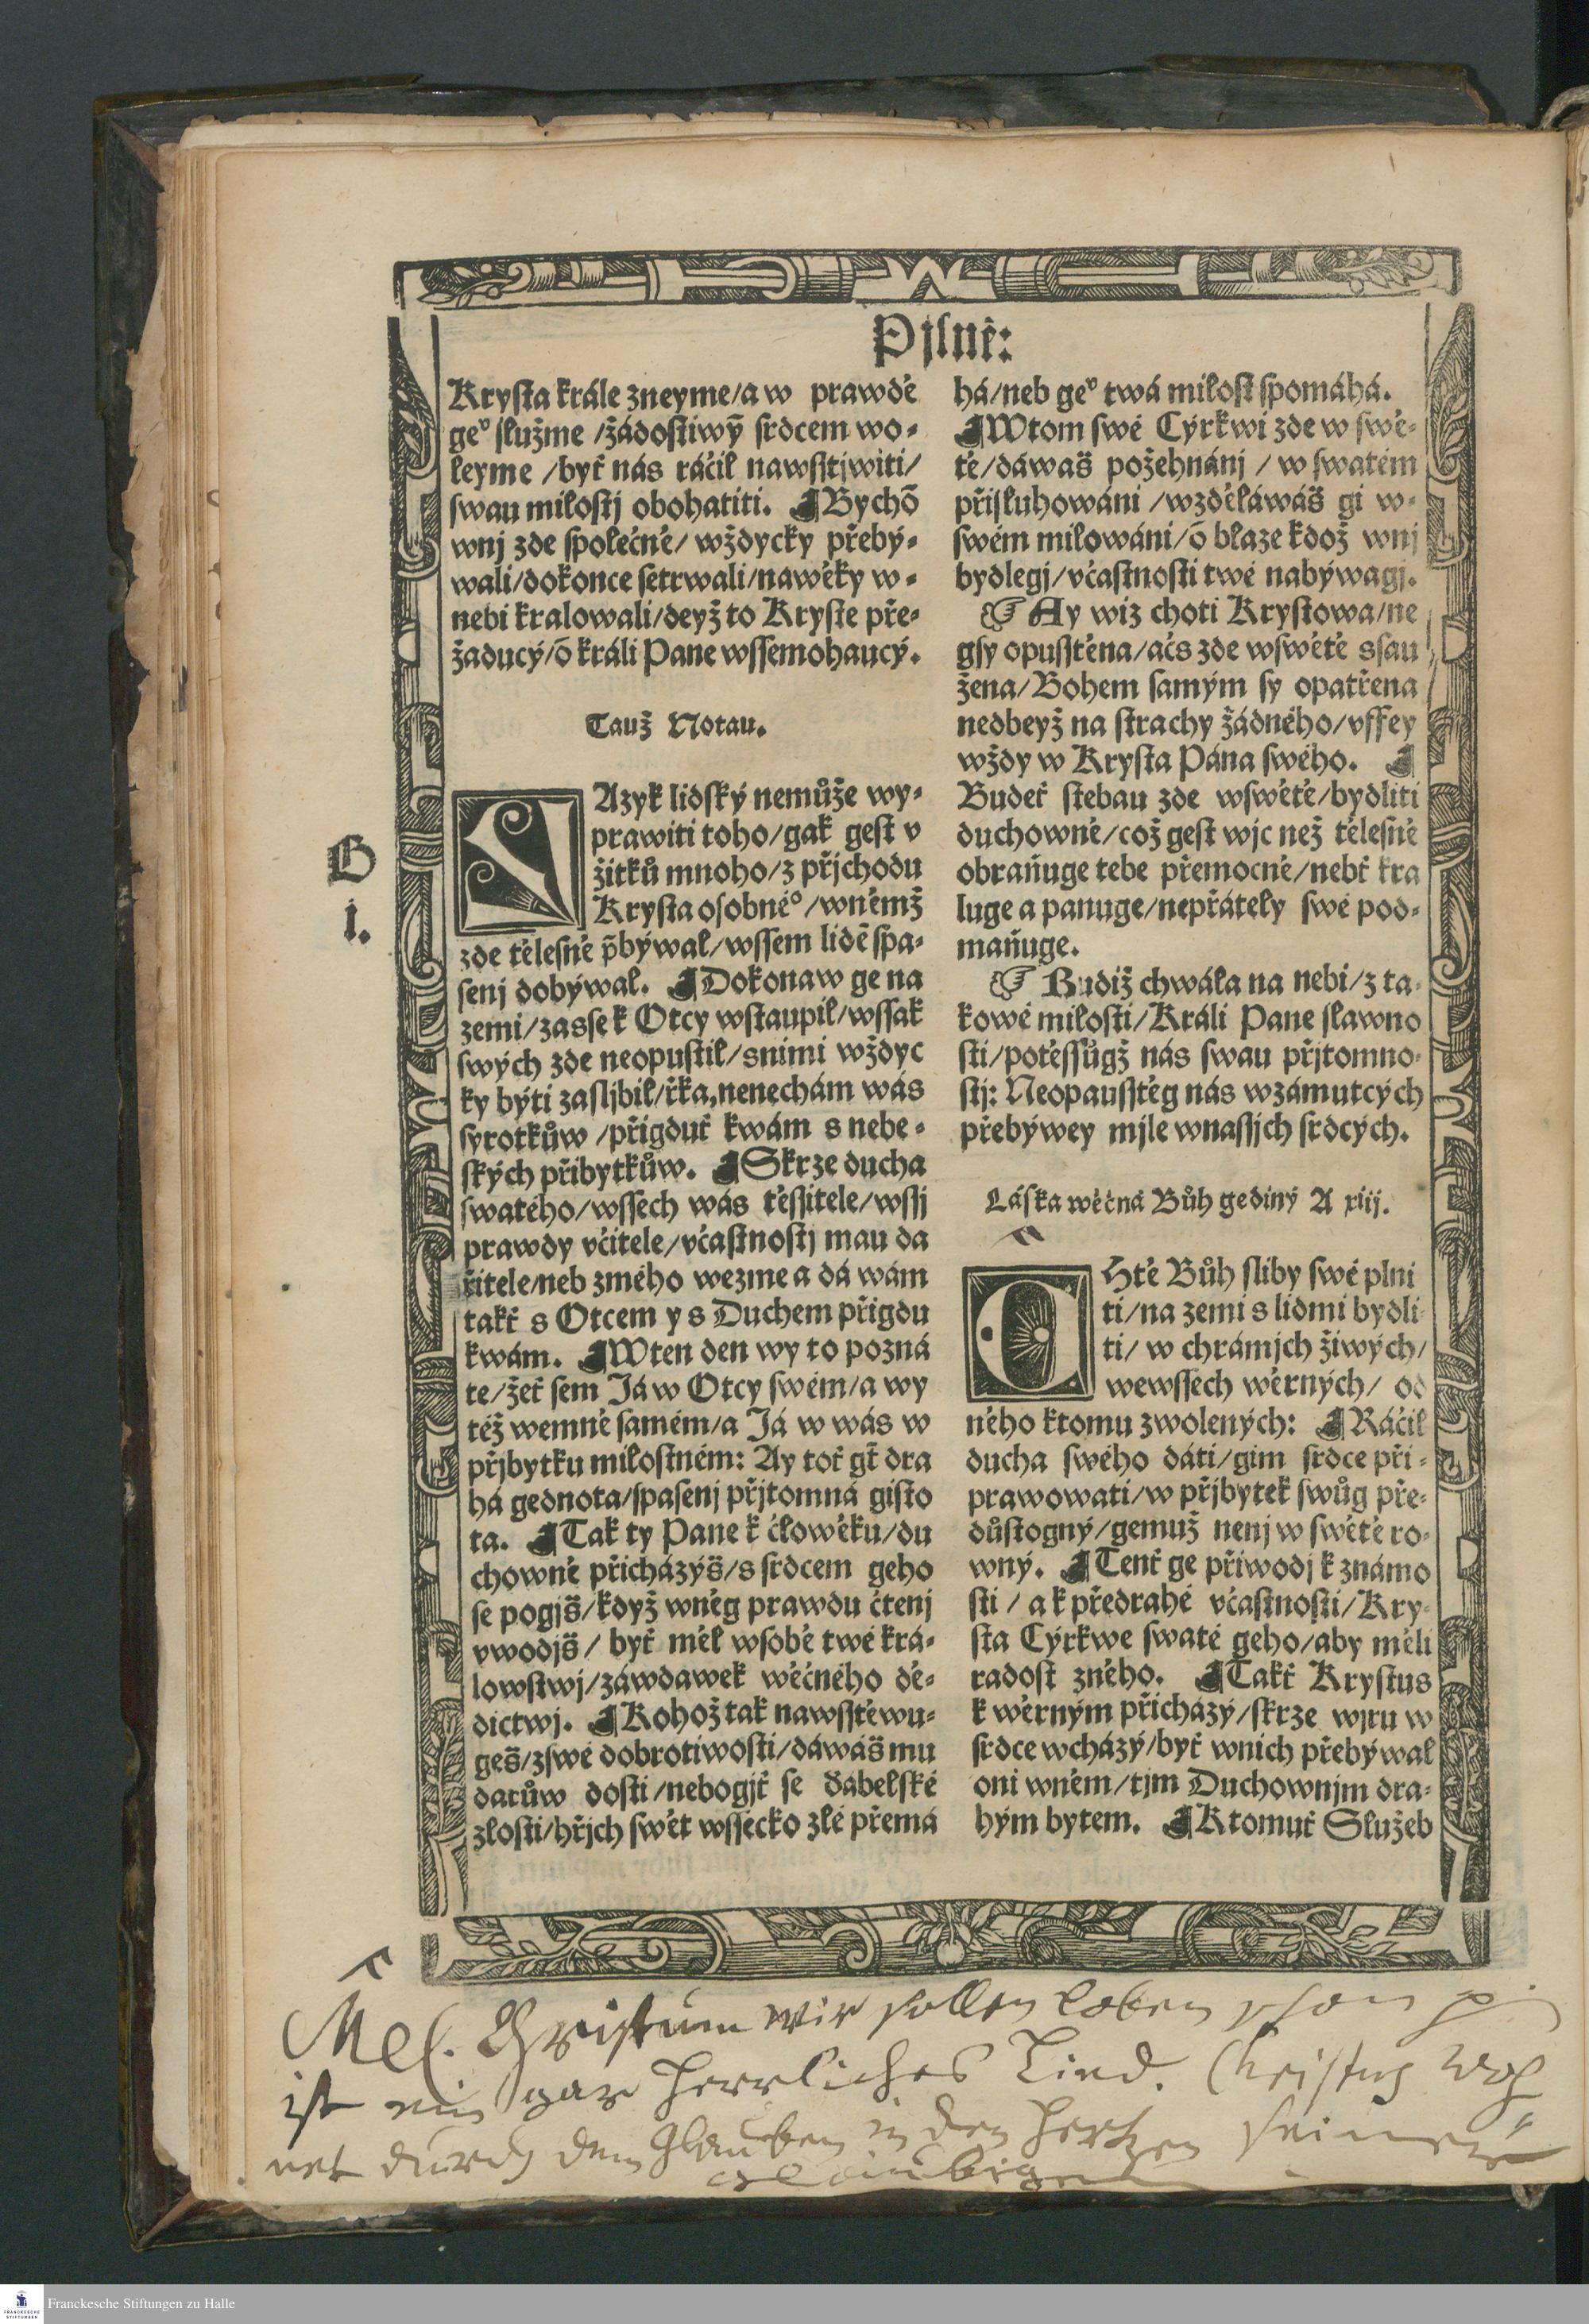 Pjsně:
Krysta krále zneyme/a w prawdě
geº služme /žádostiwỹ srdcem wo-
leyme /byť nás ráčil nawsstjwiti/
swau milostj obohatiti. ¶Bychõ
wnj zde společně/ wždycky přebý-
wali/dokonce setrwali/nawěky w-
nebi kralowali/deyž to Kryste pře-
žaducý/õ králi Pane wssemohaucý.
Tauž Notau.
G
j.
JAzyk lidský nemůže wy-
prawiti toho/gak gest v
žitků mnoho/z přjchodu
Krysta osobnéº/wněmž
zde tělesně p̃býwal/wssem lidẽ spa-
senj dobýwal. ¶Dokonaw ge na
zemi/zasse k Otcy wstaupil/wssak
swých zde neopustil/snimi wždyc
ky býti zasljbil/řka,nenechám wás
syrotkůw /přigduť kwám s nebe-
ských přibytkůw. ¶Skrze ducha
swatého/wssech wás těssitele/wssj
prawdy včitele/včastnostj mau da
řitele/neb zmého wezme a dá wám
takť s Otcem y s Duchem přigdu
kwám. ¶Wten den wy to pozná
te/žeť sem Já w Otcy swém/a wy
též wemně samém/a Já w wás w
přjbytku milostném: Ay toť gt̃ dra
há gednota/spasenj přjtomná gisto
ta. ¶Tak ty Pane k člowěku/du
chowně přicházýš/s srdcem geho
se pogjš/když wněg prawdu čtenj
vwodjš/ byť měl wsobě twé krá-
lowstwj/záwdawek wěčného dě-
dictwj. ¶Kohož tak nawsstěwu-
geš/zswé dobrotiwosti/dáwáš mu
darůw dosti/nebogjť se ďábelské
zlosti/hřjch swět wssecko zlé přemá
há/neb geº twá milost spomáhá.
¶Wtom swé Cýrkwi zde w swě-
tě/dáwaš požehnánj / w swatém
přisluhowáni /wzděláwáš gi w-
swém milowáni/õ blaze kdož wnj
bydlegj/včastnosti twé nabýwagj.
☞ Ay wiz choti Krystowa/ne
gsy opusstěna/ačs zde wswětě ssau
žena/Bohem samým sy opatřena
nedbeyž na strachy žádného/vffey
wždy w Krysta Pána swého. ¶
Budeť stebau zde wswětě/bydliti
duchowně/což gest wjc než tělesně
obraňuge tebe přemocně/nebť kra
luge a panuge/nepřátely swé pod-
maňuge.
☞ Budiž chwála na nebi/z ta-
kowé milosti/Králi Pane slawno
sti/potěssůgž nás swau přjtomno-
stj: Neopausstěg nás wzámutcých
přebýwey mjle wnassjch srdcých.
Láska wěčná Bůh gediný A xiij.
CHtě Bůh sliby swé plni
ti/na zemi s lidmi bydli-
ti/ w chrámjch žiwých/
wewssech wěrných/ od
něho ktomu zwolených: ¶Ráčil
ducha swého dáti/gim srdce při-
prawowati/w přjbytek swůg pře-
důstogný/gemuž nenj w swětě ro-
wný. ¶Tenť ge přiwodj k známo
sti / a k předrahé včastnosti/Kry-
sta Cýrkwe swaté geho/aby měli
radost zněho. ¶Takť Krystus
k wěrným přicházý/skrze wjru w
srdce wcházý/byť wnich přebýwal
oni wněm/tjm Duchownjm dra-
hým bytem. ¶Ktomuť Služeb
Mel. Christum wir sollen loben schon
ist ein gar herrliches Lied. Christus woh
net durch den Glauben in den Hertzen seiner
gläubigen
Franckesche Stiftungen zu Halle